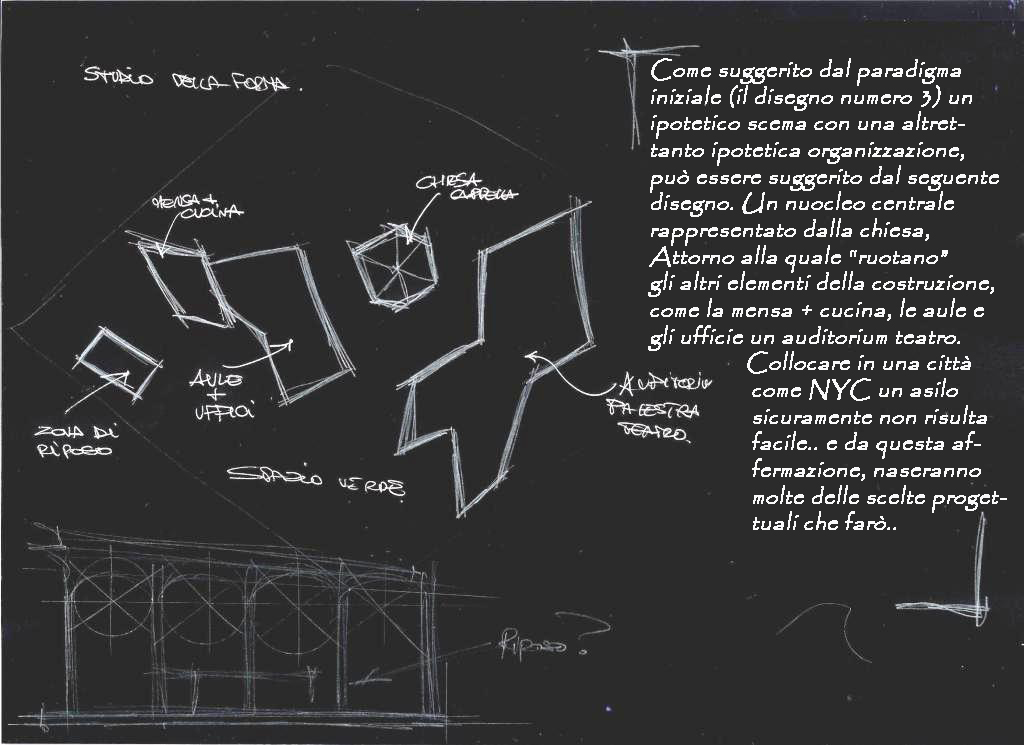 STUDIO DELLA FORMA.
MENSA +
CUCINA
CHIESA
CAPPELLA
AULE
+
UFFICI
ZONA DI
RIPOSO
SPAZIO VERDE
AUDITORIU
PALESTRA
TEATRO.
RIPOSO?
Come suggerito dal paradigma
iniziale (il disegno numero 3) un
ipotetico scema con una altret-
tanto ipotetica organizzazione,
può essere suggerito dal seguente
disegno. Un nuocleo centrale
rappresentato dalla chiesa,
Attorno alla quale "ruotano"
gli altri elementi della costruzione,
come la mensa + cucina, le aule e
gli ufficie un auditorium teatro.
Collocare in una città
come NYC un asilo
sicuramente non risulta
facile.. e da questa af-
fermazione, naseranno
molte delle scelte proget-
tuali che farò..